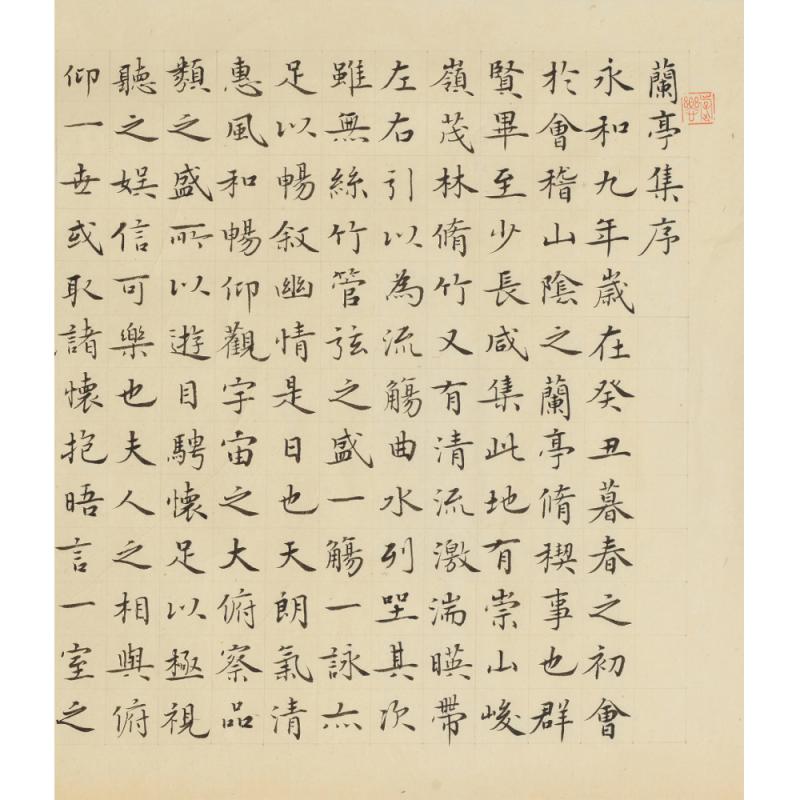 蘭亭集序
永和九年歲在癸丑暮春之初會
於會稽山陰之蘭亭脩稧事也群
賢畢至少長咸集此地有崇山峻
嶺茂林脩竹又有清流激湍暎帶
左右引以為流觴曲水列坐其次
雖無絲竹管弦之盛一觴一詠亦
足以暢叙幽情是日也天朗氣清
惠風和暢仰觀宇宙之大俯察品
類之盛所以遊目騁懷足以極視
聽之娛信可樂也夫人之相與俯
仰一世或取諸懷抱晤言一室之